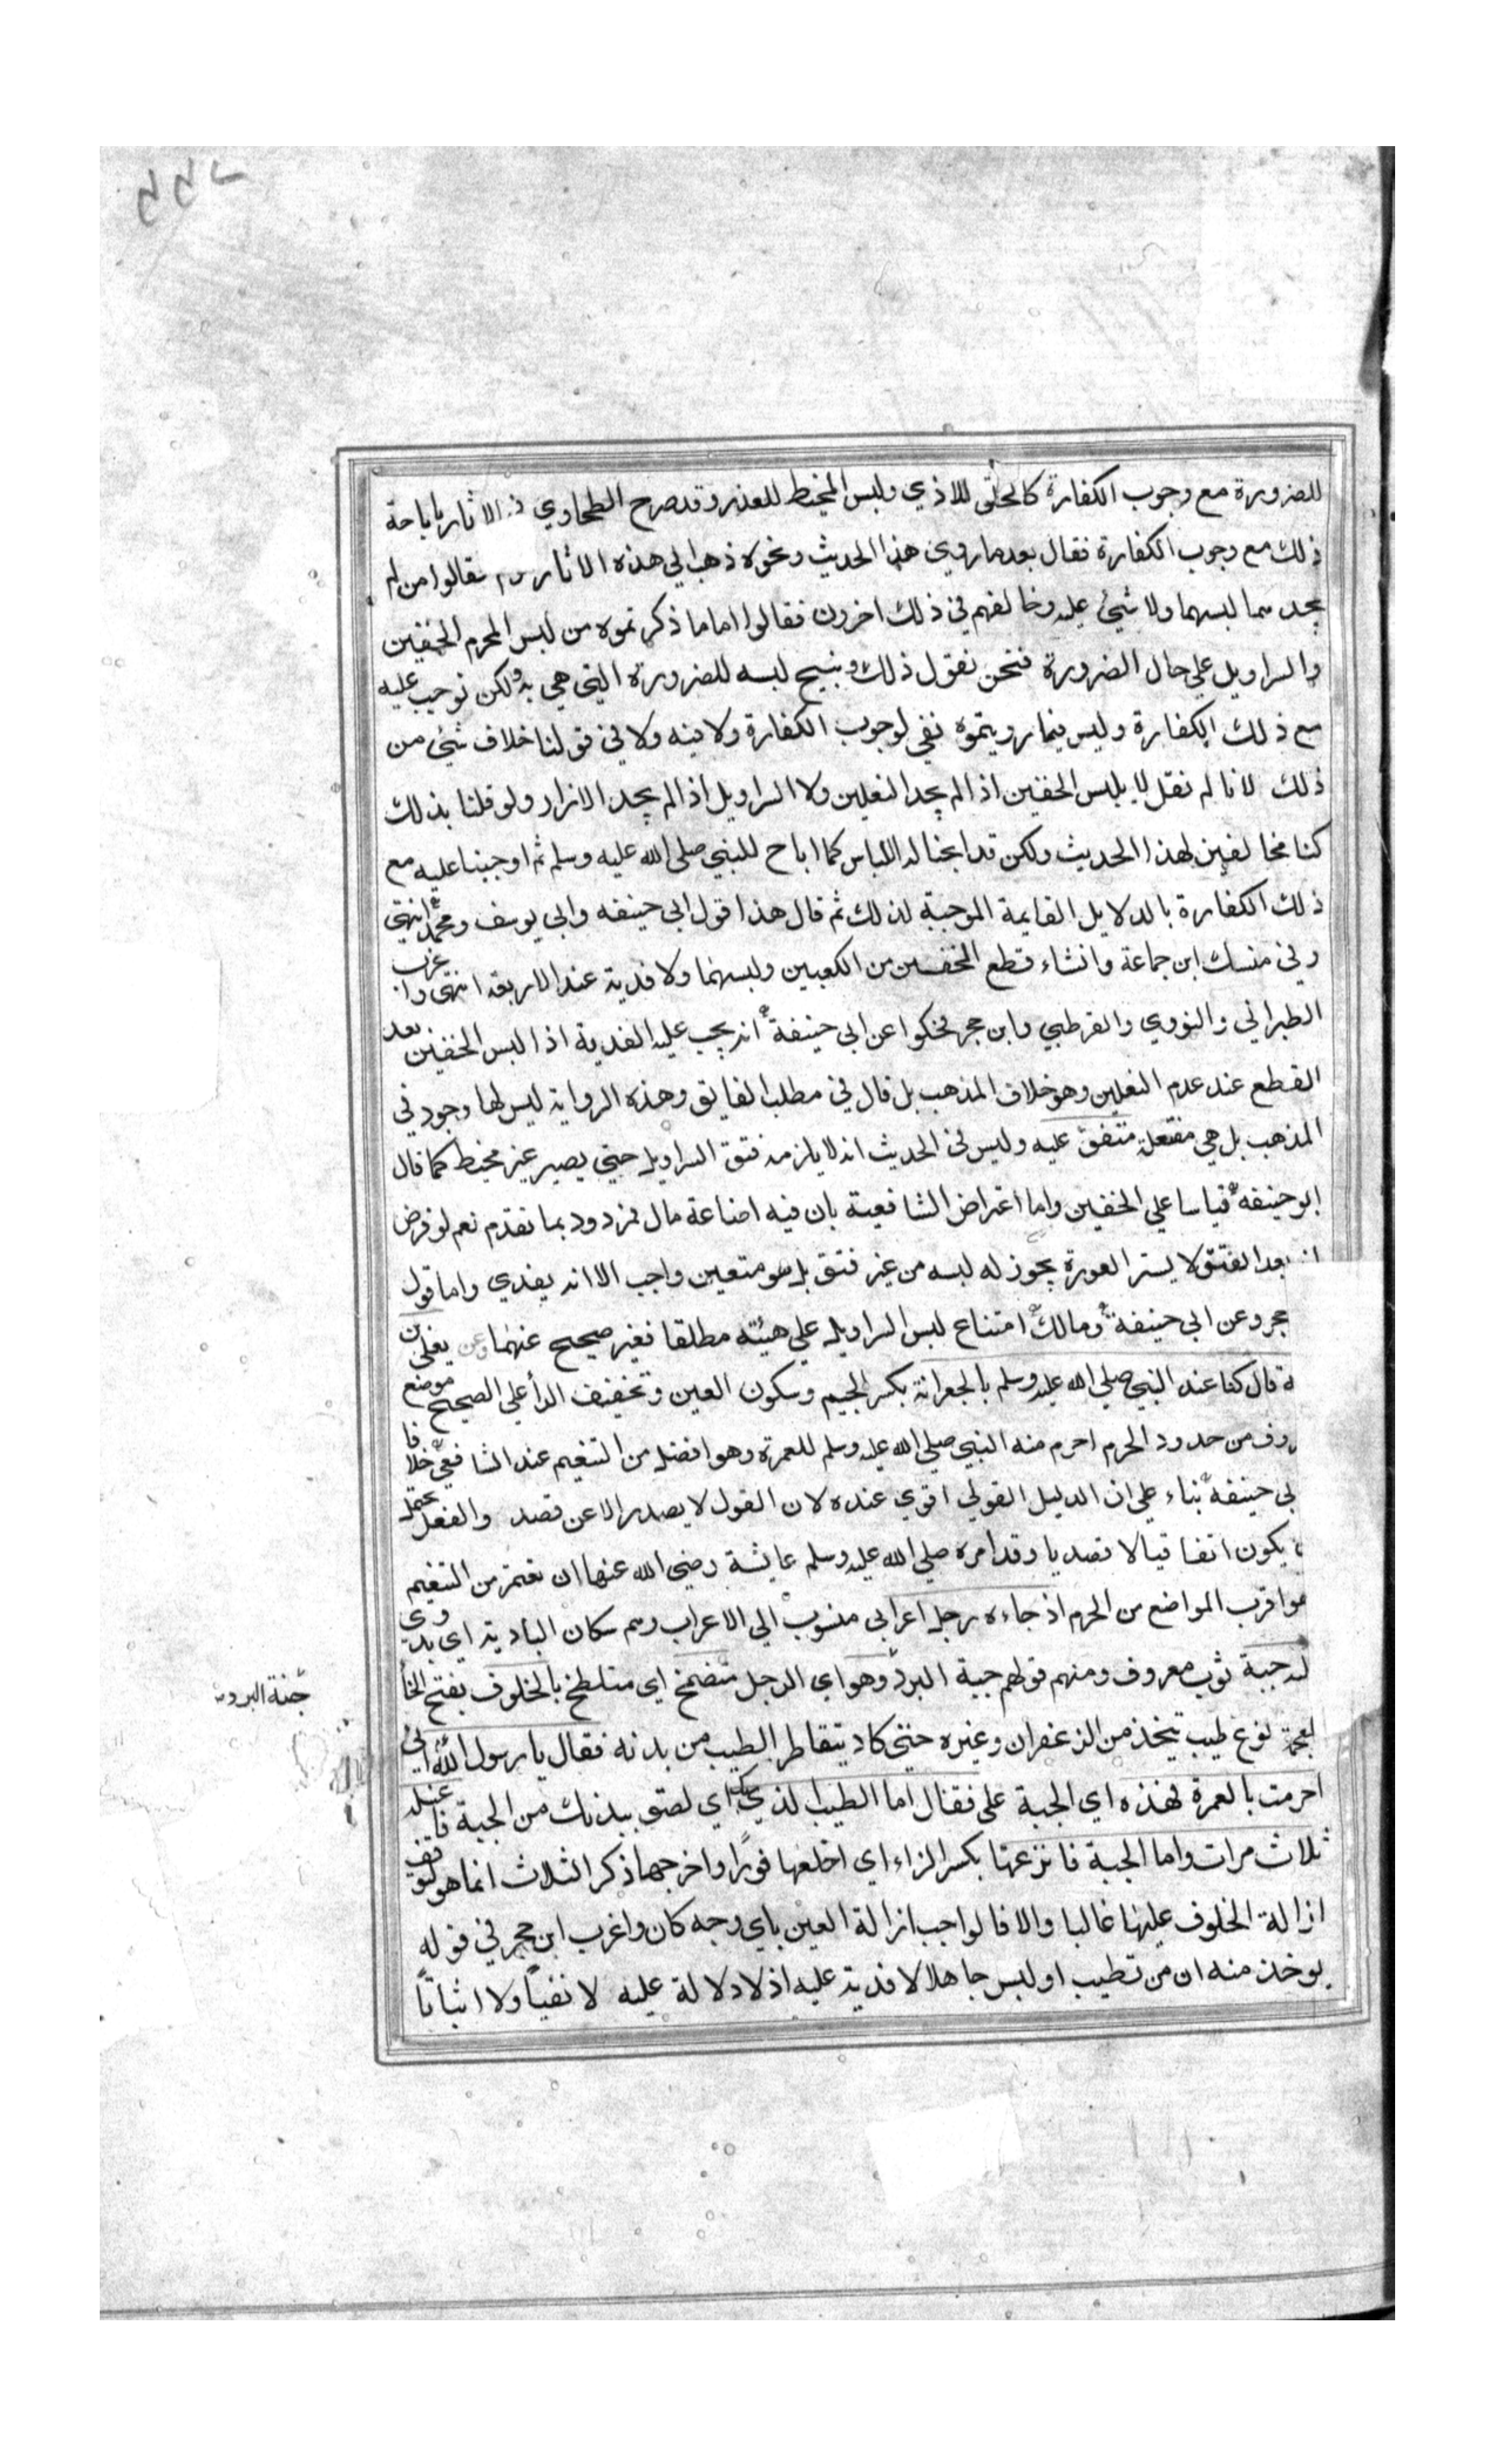 للضرورة مع وجوب الكفارة كالحلق للاذي ولبس المخيط للعذر وقد صرح الطحاوي في الاثار باباحة
ذلك مع وجوب الكفارة فقال بعد ما روي هذا الحديث ونحوه ذهب الي هذه الاثار فقالوا من لم
يجدهما لبسهما ولا شيئ عليه وخالفهم في ذلك اخرون فقالوا اما ما ذكرتموه من لبس المحرم الخفين
والسراويل علي حال الضرورة فنحن نقول ذلك ونبيح لبسه للضرورة التي هي به ولكن نوجب عليه
مع ذلك الكفارة وليس فيما رويتموه نفي لوجوب الكفارة ولا فيه ولا في قولنا خلاف شيئ من
ذلك لانا لم نقل لا يلبس الخفين اذا لم يجد النعلين ولا السراويل اذا لم يجد الازار ولو قلنا بذلك
كنا مخالفين لهذا الحديث ولكن قد ابحنا له اللباس كما اباح للنبي صلى الله عليه وسلم ثم اوجبنا عليه مع
ذلك الكفارة بالدلايل القايمة الموجبة لذلك ثم قال هذا قول ابي حنيفه وابي يوسف ومحمد انتهي
وفي منسك ابن جماعة وان شاء قطع الخفين من الكعبين ولبسهما ولا فدية عند الاربعة انتهى واغرب
الطبراني والنووي والقرطبي وابن حجر فحكوا عن ابي حنيفة انه يجب عليه الفدية اذا لبس الخفين بعد
القطع عند عدم النعلين وهو خلاف المذهب بل قال في مطلب الفايق وهذه الرواية ليس لها وجود في
المذهب بل هي مفتعلة متفق عليه وليس في الحديث انه لا يلزمه فتق السراويل حتي يصير غير مخيط كما قال
ابو حنيفة قياسا علي الخفين واما اعتراض الشافعية بان فيه اضاعة مال فمردود بما تقدم نعم لو فرض
انه بعد الفتق لا يستر العورة يجوز له لبسه من غير فتق بل هو متعين واجب الا انه يفدي واما قول
حجر وعن ابي حنيفة ومالك امتناع لبس السراويل علي هيئته مطلقا فغير صحيح عنهما وعن يعلى بن
ة قال كنا عند النبي صلي الله عليه وسلم بالجعرانة بكسر الجيم وسكون العين وتخفيف الرأ علي الصحيح موضع
روف من حدود الحرم احرم منه النبي صلي الله عليه وسلم للعمرة وهو افضل من التنعيم عند الشافعي خلافا
لابي حنيفة بناء علي ان الدليل القولي اقوي عنده لان القول لا يصدر الا عن قصد والفعل يحتمل
يكون اتفاقيا لا قصديا وقد امره صلي الله عليه وسلم عايشة رضي الله عنها ان تعتمر من التنعيم
هو اقرب المواضع من الحرم اذ جاءه رجل اعرابي منسوب الي الاعراب وهم سكان البادية اي بدوي
له جبة ثوب معروف ومنهم قولهم جبة البرد وهو اي الرجل متضمخ اي متلطخ بالخلوف بفتح الخأ
لمعجمة نوع طيب يتخذ من الزعفران وغيره حتى كاد يتقاطر الطيب من بدنه فقال يا رسول الله اني
احرمت بالعمرة وهذه اي الجبة علي فقال اما الطيب الذي بك اي لصق ببدنك من الجبة فاغسله
ثلاث مرات واما الجبة فانزعها بكسر الزاء اي اخلعها فورًا واخرجها ذكر الثلاث انما هو لتوقف
ازالة الخلوف عليها غالبا والا فالواجب ازالة العين باي وجه كان واغرب ابن حجر في قوله
يوخذ منه ان من تطيب او لبس جاهلا لا فدية عليه اذ لا دلالة عليه لا نفيًا ولا اثباتًا
جنة البرد